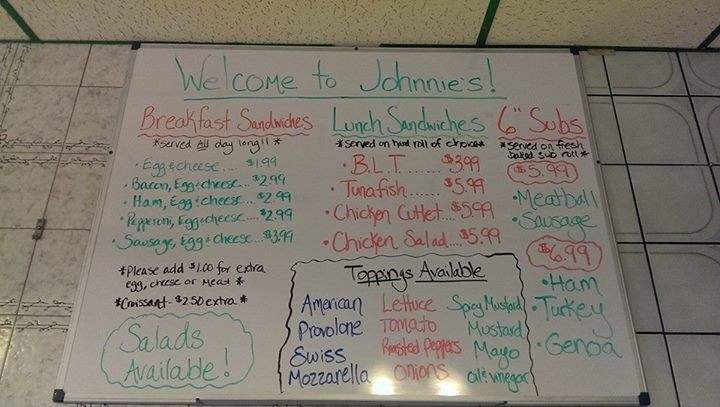 Welcome to Johnnie's!
Breakfast Sandwiches
*served All day long!!*
• Egg & cheese.... $1.99
• Bacon, Egg & cheese... $2.99
• Ham, Egg & cheese... $2.99
• Pepperoni, Egg & cheese... $2.99
• Sausage, Egg & cheese... $3.99
*Please add $1.00 for extra
egg, cheese or Meat *
*Croissant - $2.50 extra *
Salads
Available!
Lunch Sandwiches
*served on hard roll of choice*
• B.L.T....... $3.99
• Tunafish..... $5.99
• Chicken Cutlet.... $5.99
• Chicken Salad.... $5.99
Toppings Available
American
Provolone
Swiss
Mozzarella
Lettuce
Tomato
Roasted Peppers
Onions
Spicy Mustard
Mustard
Mayo
oil & vinegar
6" Subs
*served on fresh
baked sub roll*
$5.99
• Meatball
• Sausage
$6.99
• Ham
• Turkey
• Genoa